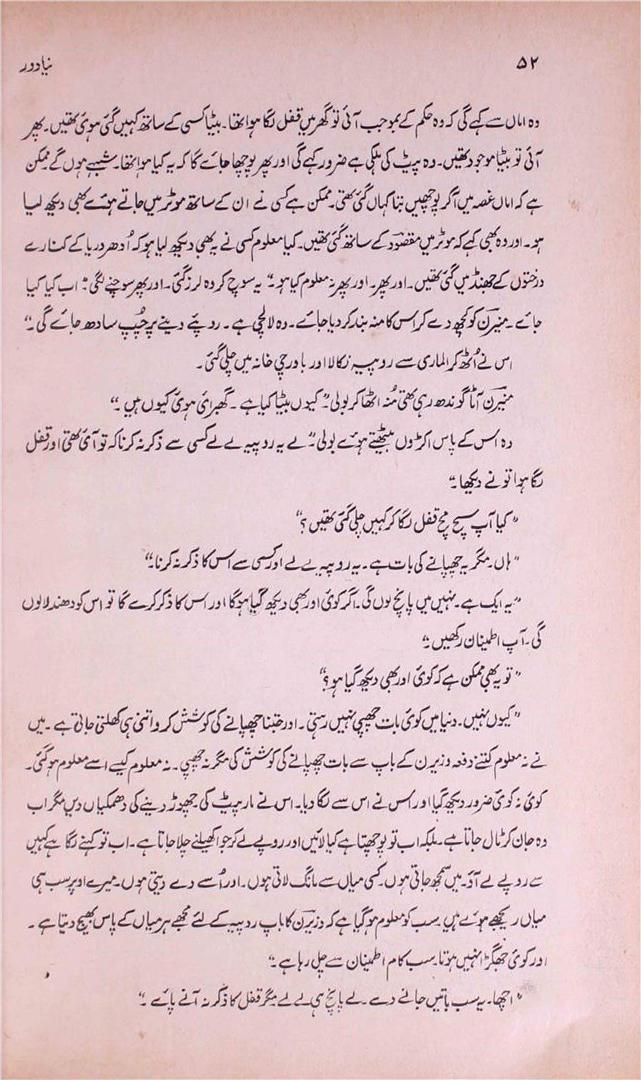 ۵۲ نیا دور
وہ اماں سے کہے گی کہ وہ حکم کے بموجب آئی تو گھر میں قفل لگا ہوا تھا۔ بٹیا کسی کے ساتھ کہیں گئی ہوئی تھیں۔ پھر
آئی تو بٹیا موجود تھیں۔ وہ پیٹ کی ہلکی ہے ضرور کہے گی اور پھر پوچھا جائے گا کہ یہ کیا ہوا تھا۔ شبہے ہوں گے ممکن
ہے کہ اماں غصہ میں اگر پوچھیں بتا کہاں گئی تھی۔ ممکن ہے کسی نے ان کے ساتھ موٹر میں جاتے ہوئے بھی دیکھ لیا
ہو۔ اور وہ بھی کہے کہ موٹر میں مقصود کے ساتھ گئی تھیں۔ کیا معلوم کسی نے یہ بھی دیکھ لیا ہو کہ اُدھر دریا کے کنارے
درختوں کے جھنڈ میں گئی تھیں۔ اور پھر۔ اور پھر نہ معلوم کیا ہو۔“ یہ سوچ کر وہ لرز گئی۔ اور پھر سوچنے لگی: اب کیا کیا
جائے۔ منیرن کو کچھ دے کر اس کا منہ بند کر دیا جائے۔ وہ لالچی ہے۔ روپئے دینے پر چُپ سادھ جائے گی۔“
اس نے اُٹھ کر الماری سے روپیہ نکالا اور باورچی خانہ میں چلی گئی۔
منیرن آٹا گوندھ رہی تھی مُنہ اٹھا کر بولی” کیوں بٹیا کیا ہے۔ گھبرائی ہوئی کیوں ہیں۔“
وہ اس کے پاس اکڑوں بیٹھتے ہوئے بولی” لے یہ روپیہ لے لے کسی سے ذکر نہ کرنا کہ تو آئی تھی اور قفل
لگا ہوا تو نے دیکھا۔“
”کیا آپ سچ مچ قفل لگا کر کہیں چلی گئی تھیں؟“
”ہاں۔ مگر یہ چھپانے کی بات ہے۔ یہ روپیہ لے لے اور کسی سے اس کا ذکر نہ کرنا۔“
”یہ ایک ہے۔ نہیں میں پانچ لوں گی۔ اگر کوئی اور بھی دیکھ گیا ہوگا اور اس کا ذکر کرے گا تو اس کو دھندلا لوں
گی۔ آپ اطمینان رکھیں۔“
”تو یہ بھی ممکن ہے کہ کوئی اور بھی دیکھ گیا ہو؟“
”کیوں نہیں۔ دنیا میں کوئی بات چھپی نہیں رہتی۔ اور جتنا چھپانے کی کوشش کرو اتنی ہی کھلتی جاتی ہے۔ میں
نے نہ معلوم کتنے دفعہ وزیرن کے باپ سے بات چھپانے کی کوشش کی مگر نہ چھپی۔ نہ معلوم کیسے اسے معلوم ہو گئی۔
کوئی نہ کوئی ضرور دیکھ گیا اور اس نے اس سے لگا دیا۔ اس نے مار پیٹ کی چھوڑ دینے کی دھمکیاں دیں مگر اب
وہ جان کر ٹال جاتا ہے۔ بلکہ اب تو پوچھتا ہے کیا لائیں اور روپے لے کر جوا کھیلنے چلا جاتا ہے۔ اب تو کہنے لگا ہے کہیں
سے روپے لے آؤ۔ میں سمجھ جاتی ہوں۔ کسی میاں سے مانگ لاتی ہوں۔ اور اُسے دے دیتی ہوں۔ میرے اوپر سب ہی
میاں ریجھے ہوئے ہیں۔ سب کو معلوم ہو گیا ہے کہ وزیرن کا باپ روپیہ کے لئے مجھے ہر میاں کے پاس بھیج دیتا ہے۔
اور کوئی جھگڑا نہیں ہوتا۔ سب کام اطمینان سے چل رہا ہے۔“
”اچھا۔ یہ سب باتیں جانے دے۔ لے پانچ ہی لے لے مگر قفل کا ذکر نہ آنے پائے۔“